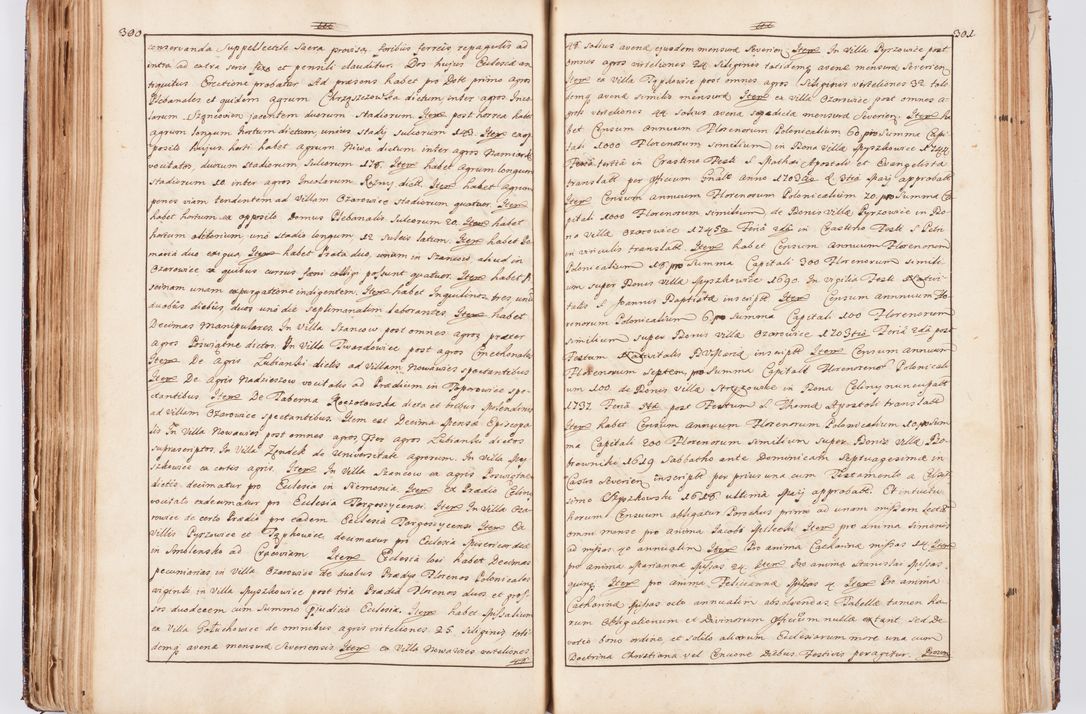 300
conservanda suppellectile sacra provisa, foribus ferreis repagulis ad
intra ad extra seris fixa et pensili clauditur. Dos hujus Ecclesiæ an
tiquitus Erectione probatur Ad præsens habet pro Dote primo agros
Plebanales et quidem agrum Chrząszczowska dictum, inter agros Inco
larum jacentem duorum Stadiorum. Item post horrea habet
agrum longum hortum dictum, unius Stadij Sulcorum 143. Item ex op
posito hujus horti habet agrum Niwa dictum inter agros
vocitatos, duorum Stadiorum Sulcorum 178. Item habet agrum longum
Stadiorum 10 inter agros Incolarum dict. Item habet Agrum
penes viam tendentem ad Villam Ożarowice Stadiorum quatuor. Item
habet hortum ex opposito Domus Plebanalis Sulcorum 20. Item habet
hortum olitorium uno Stadio longum, 12 Sulcis latum. Item habet Po
maria duo exigua, Item habet Prata duo, unum in aliud in
Ożarowice ex quibus currus fæni colligi possunt quatuor. Item habet pi
scinam unam expurgatione indigentem. Item habet Inquilinos tres, unum
duobus diebus, duos uno die Septimanatim laborantes. Item habet
Decimas Manipulares. In Villa post omnes agros, præter
agros dictos. In Villa Twardowice post agros Cmethonales
Item De Agris Lubianski dictis ad Villam Nowawies spectantibus
Item De Agris vocitatis ad Prædium in spe
ctantibus Item De Taberna dicta et tribus
ad Villam Ożarowice spectantibus. Item est Decima Episcopa
lis In Villa Nowawies post omnes agros, Agros Lubianski dictos
suprascriptos. In Villa Zendek de Universitate Agrorum. In Villa
szkowice ex certis agris. Item In Villa ex agris
dictis decimatur pro Ecclesia in Siemonia Item ex Prædio Celiny
vocitato exdecimatur pro Ecclesia Targoszycensi. Item In Villa Oża
rowice de certo Prædio pro eadem Ecclesia Targoszycensi Item Ex
Villis Pyrzowice et decimatur pro Ecclesia Misericordiæ
in Smolensko ad Cracoviam Item Ecclesia loci habet Decimas
pecuniarias, in Villa Ożarowice de duobus Prædijs Florenos Polonicales
viginti in Villa Myszkowice post tria Prædia Florenos duos et gros
sos duodecem cum Summo præjudicio Ecclesiæ. Item habet Missalium
ex Villa de omnibus agris virteliones 25. Siliginis toti
dem avenæ mensuræ Severiensis. Item ex Villa Nowawies verteliones
48
301
48 solius avenæ ejusdem mensuræ Severien. Item In Villa Pyrzowice post
omnes agros virteliones 24. Siliginis totidem avenæ mensuræ Severien
Item ex Villa post omnes agros Siliginis virteliones 32 toti
dem avenæ similis mensuræ Item ex Villa Ożarowice post omnes a
gros virteliones 44 solius avenæ mensuræ Severien. Item ha
bet Censum Annuum Florenorum Polonicalium 60 pro Summa Capi
tali 1000 Florenorum similium in Bona Villa Myszkowice 1744.
Feria tertia in Crastino Festi S. Mathæi Apostoli et Evangelistæ
translatt per Officium Anno 1703tio d. 3tia Maij approbatt
Item Censum annuum Florenorum Polonicalium 70 pro Summa Ca
pitali 1000 Florenorum similium de Bonis Villæ Pyrzowice in Bo
na Villæ Ożarowice 1745to Feria 2da in Crastino Festi S. Petri
in vinculis translatt Item habet Censum Annuum Florenorum
Polonicalium 18 pro Summa Capitali 300 Florenorum simili
um super Bonis Villæ Myszkowice 1690. In vigilia Festi Nativi
tatis S. Joannis Baptistæ inscript. Item Censum Annuum Flo
renorum Polonicalium 6 pro Summa Capitali 100 Florenorum
similium super Bonis Villæ Ożarowice 1703tio Feria 2da post
Festum Nativitatis B.V.Mariæ inscriptt Item Censum Annuum
Florenorum Septem, pro Summa Capitali Florenorum Polonicali
um 100. de Bonis Villæ in Bona Celiny nuncupatt
1737. Feria post Festum S. Thomæ Apostoli translatt
Item habet Censum Annuum Florenorum Polonicalium 10, pro Sum
ma Capitali 200 Florenorum Similium super Bonis Villæ Do
browniki 1619 Sabbatho ante Dominicam Septuagesimæ in
Castro Severien inscriptt per prius una cum Testamento a
simo 1618 ultima Maij approbatt. Et intuitu
horum Censuum obligatur Parochus primo ad unam missam lectam
omni mense pro anima Jacobi Item pro anima Simonis
ad missas 40 annuatim Item Pro anima Catharinæ missas 14 Item
pro anima Mariannæ Missas 24. Item Pro anima Stanislai Missas
quinq. Item pro anima Felicianna Missas 4 Item Pro anima
Catharinæ Missas octo annuatim absolvendas Tabella tamen ha
rum Obligationum et Divinorum Officium nulla extant sed De
voto bono ordine, et solito aliorum Ecclesiarum more una cum
Doctrina Christiana vel Concione Diebus Festivis peragitur.